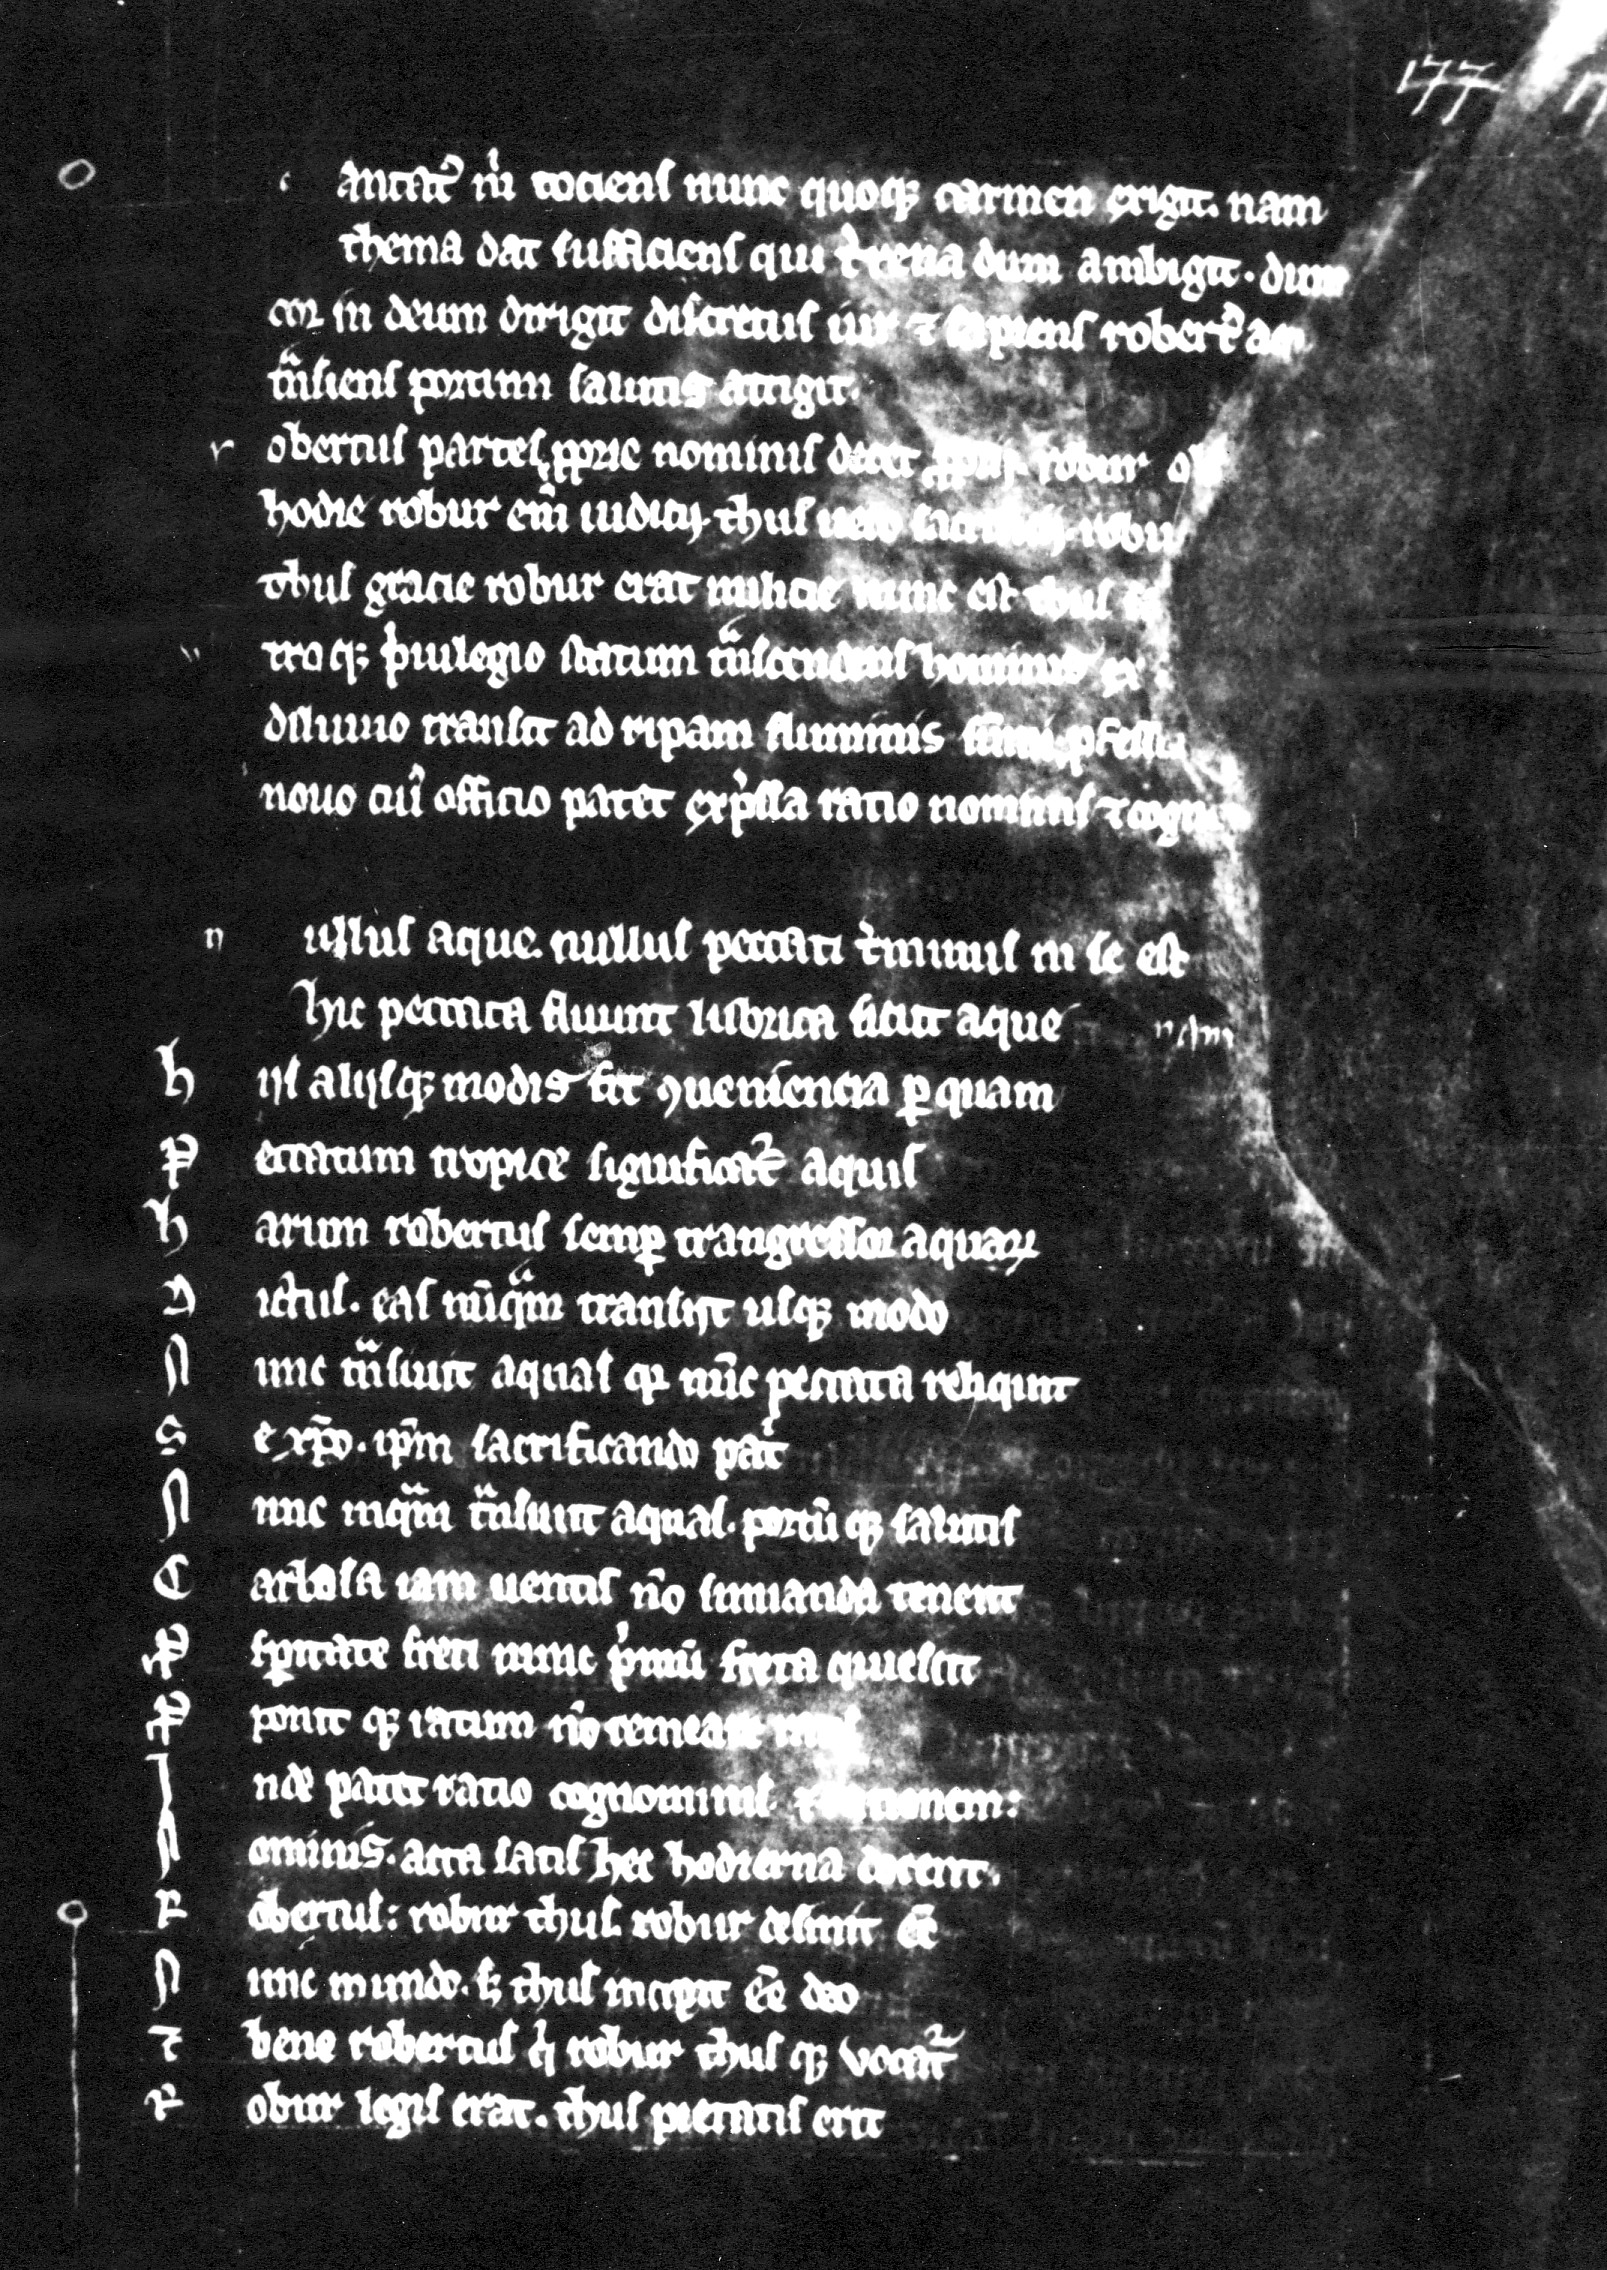 177
c antat᷑ m̾ tociens nunc quoq; carmen exigit. nam
thema dat sufficiens qui dum ambigit. dum
cor in deum dirigit discretus uir ⁊ sapiens robert᷒ aq
tͣnsiens portum salutis attigit.
r obertus partes ꝓprie nominis docet robur
hodie robur em̃ iudicij. thus uero sacrificij. robur
thus gracie robur erat milicie nunc est thus
u troq; pͥuilegio statum tͣnscendens hominis ex
diluuio transit ad ripam fluminis
nouo cui᷒ officio patet exp̾ssa ratio nominis ⁊ cogno
n ullus aque. nullus peccati t̾minus in se est
hic peccata fluunt lubrica sicut aque nam
h ijs alijsq; modis fit ꝯueniencia ꝑ quam
P eccatum tropice significat᷑ aquis
h arum robertus semꝑ trangressor aquaꝝ
D ictus. eas nũqͣm transijt usq; modo
N unc tͣnsiuit aquas qꝛ nũc peccata reliquit
S e xp̃o. ip̃m sacrificando pat̾
N unc inqͣm tͣnsiuit aquas. portũ q; salutis
C arbasa iam uentis nõ sinuanda tenent
Ꝓ sꝑitate freti nunc pͥmũ freta quiescit
Ꝓ ponit q; ratum nõ remeare
I nde patet ratio cognominis. ⁊ rationem:
N ominis. acta satis hec hodierna docent.
R obertus: robur thus. robur desinit ẽe
N unc mundo. sꝫ thus incipit ẽe deo
E t bene robertus qͥ robur thus q; vocat᷑
R obur legis erat. thus pietatis erit